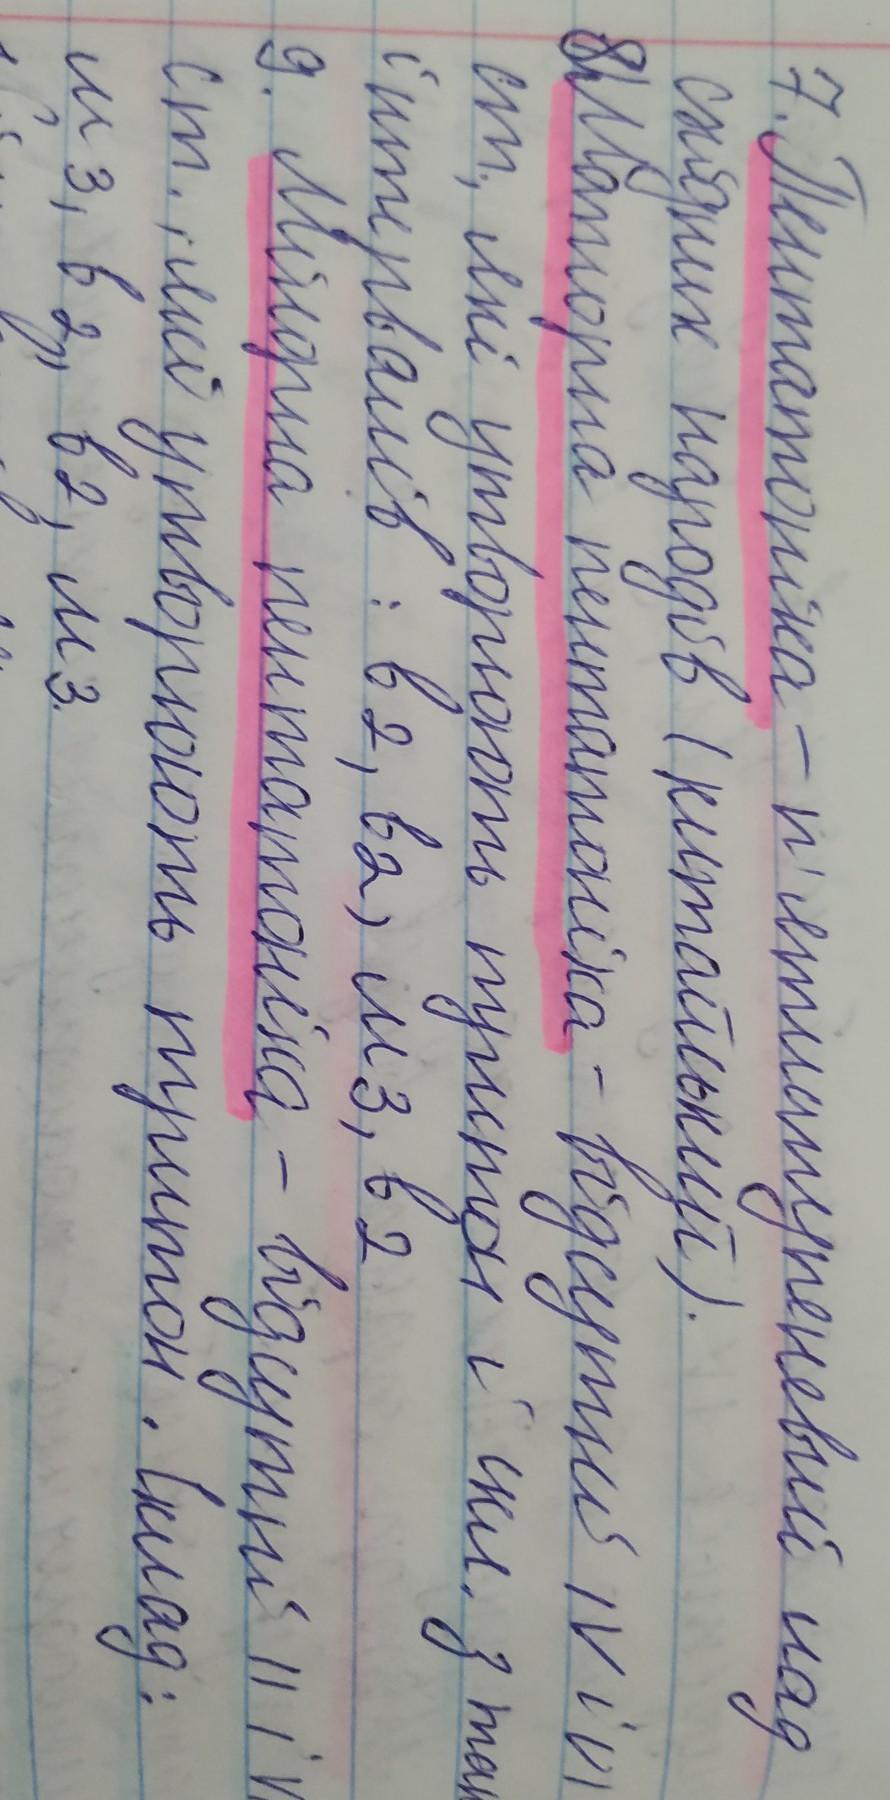 7. Пентатоніка – п'ятиступеневый лад
східних народів (китайський).
8. Мажорна пентатоніка – відсутні IV і VI
ст, які утворюють тритон і скл. з так
інтервалів : в2, в2, м3, в2
9. Мінорна пентатоніка – відсутні II і VI
ст., які утворюють тритон. Склад:
м3, в2, в2, м3.